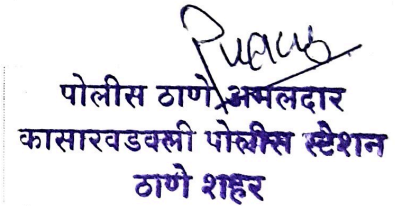 पोलीस ठाणे अमलदार
कासारवडवली पोलीस स्टेशन
ठाणे शहर